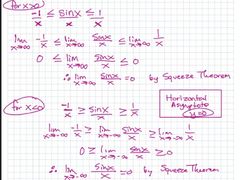 for x>0
-1/x ≤ sinx/x ≤ 1/x
lim x→∞ -1/x ≤ lim x→∞ sinx/x ≤ lim x→∞ 1/x
0 ≤ lim x→∞ sinx/x ≤ 0
∴ lim x→∞ sinx/x = 0 by Squeeze Theorem
for x<0 -1/x ≥ sinx/x ≥ 1/x
Horizontal
Asymptote
y=0
lim x→-∞ -1/x ≥ lim x→-∞ sinx/x ≥ lim x→-∞ 1/x
0 ≥ lim x→-∞ sinx/x ≥ 0
∴ lim x→-∞ sinx/x = 0 by Squeeze Theorem